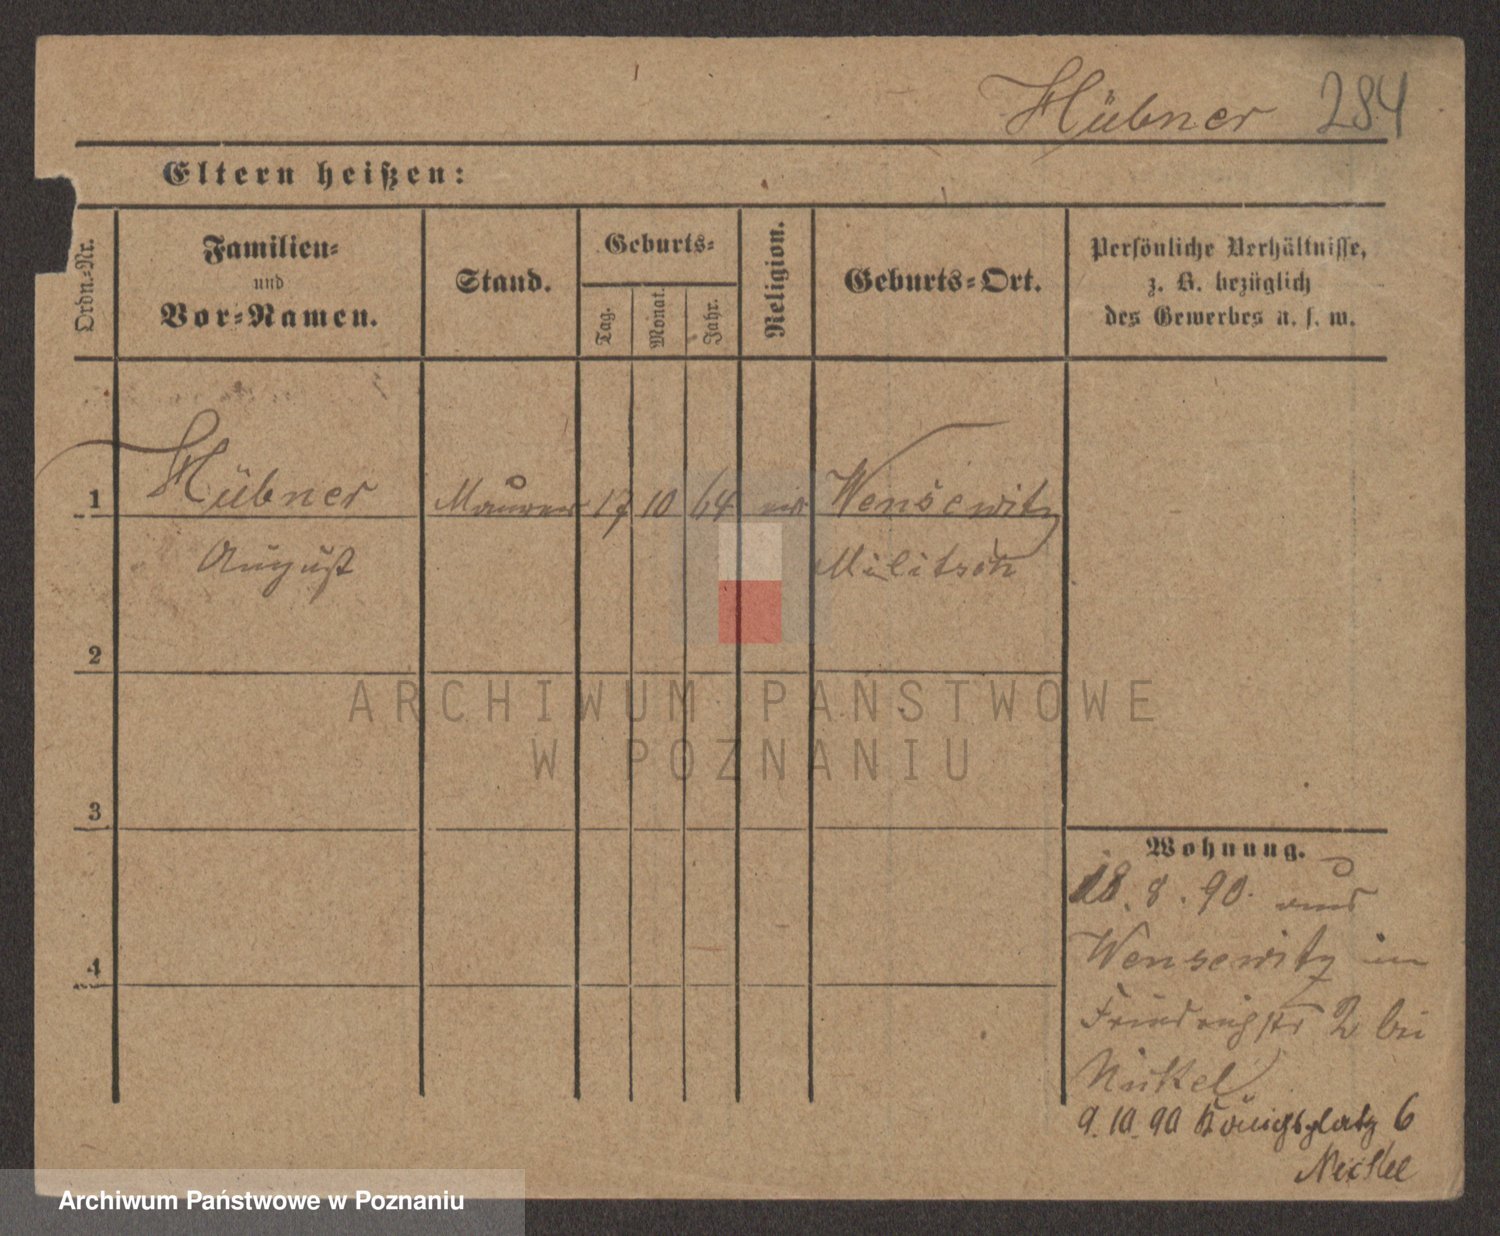 Hübner 284
Eltern heißen:
Ordn.-Nr.
Familien-
und
Vor-Namen.
Stand.
Geburts-
Tag.
Monat.
Jahr.
Religion.
Geburts-Ort.
Persönliche Verhältnisse,
z. B. bezüglich
des Gewerbes u. s. w.
1 Hübner Maurer 17 10 64 Wensewitz
August Militsch
2
3
4
Wohnung.
18. 8. 90. aus
Wensewitz in
Friedrichstr 2 bei
Nickel
9. 10. 90 Königsplatz 6
Nickel
ARCHIWUM PAŃSTWOWE
W POZNANIU
Archiwum Państwowe w Poznaniu